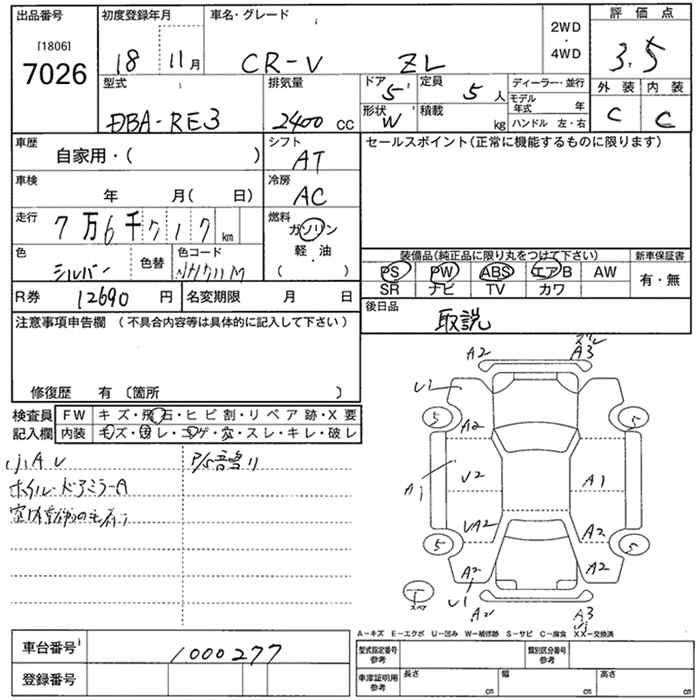 出品番号
[1806]
7026
初度登録年月
18 11月
車名・グレード
CR-V ZL
2WD
・
4WD
評価点
3.5
外装 内装
C C
型式
DBA-RE3
排気量
2400 CC
ドア
5
形状
W
定員
5人
積載
kg
ディーラー・並行
モデル年式 年
ハンドル 左・右
車歴
自家用・( )
シフト
AT
車検
年 月( 日)
冷房
AC
走行
7万6千717km
燃料
ガソリン
軽・油
( )
色
シルバー
色替
色コード
NH711M
R券 12690 円
名変期限 月 日
セールスポイント(正常に機能するものに限ります)
装備品(純正品に限り丸をつけて下さい)
PS PW ABS エアB AW
SR ナビ TV カワ
新車保証書
有・無
後日品
取説
注意事項申告欄 (不具合内容等は具体的に記入して下さい)
修復歴 有 〔箇所 〕
検査員記入欄
FW キズ・飛石・ヒビ割・リペア跡・X要
内装 キズ・汚レ・コゲ・穴・スレ・キレ・破レ
小AU
ホイル・ドアミラーA
P/S音鳴リ
A2 A3
U1
5 5
A2
U2 A1
A1
UA2 A2
5 5
A2 A2
U1
A2 A3
T
スペア
A-キズ E-エクボ U-凹み W-補修跡 S-サビ C-腐食 XX-交換済
車台番号 1000277
登録番号
型式指定番号
参考
類別区分番号
参考
車庫証明用
参考
長さ cm
幅 cm
高さ cm